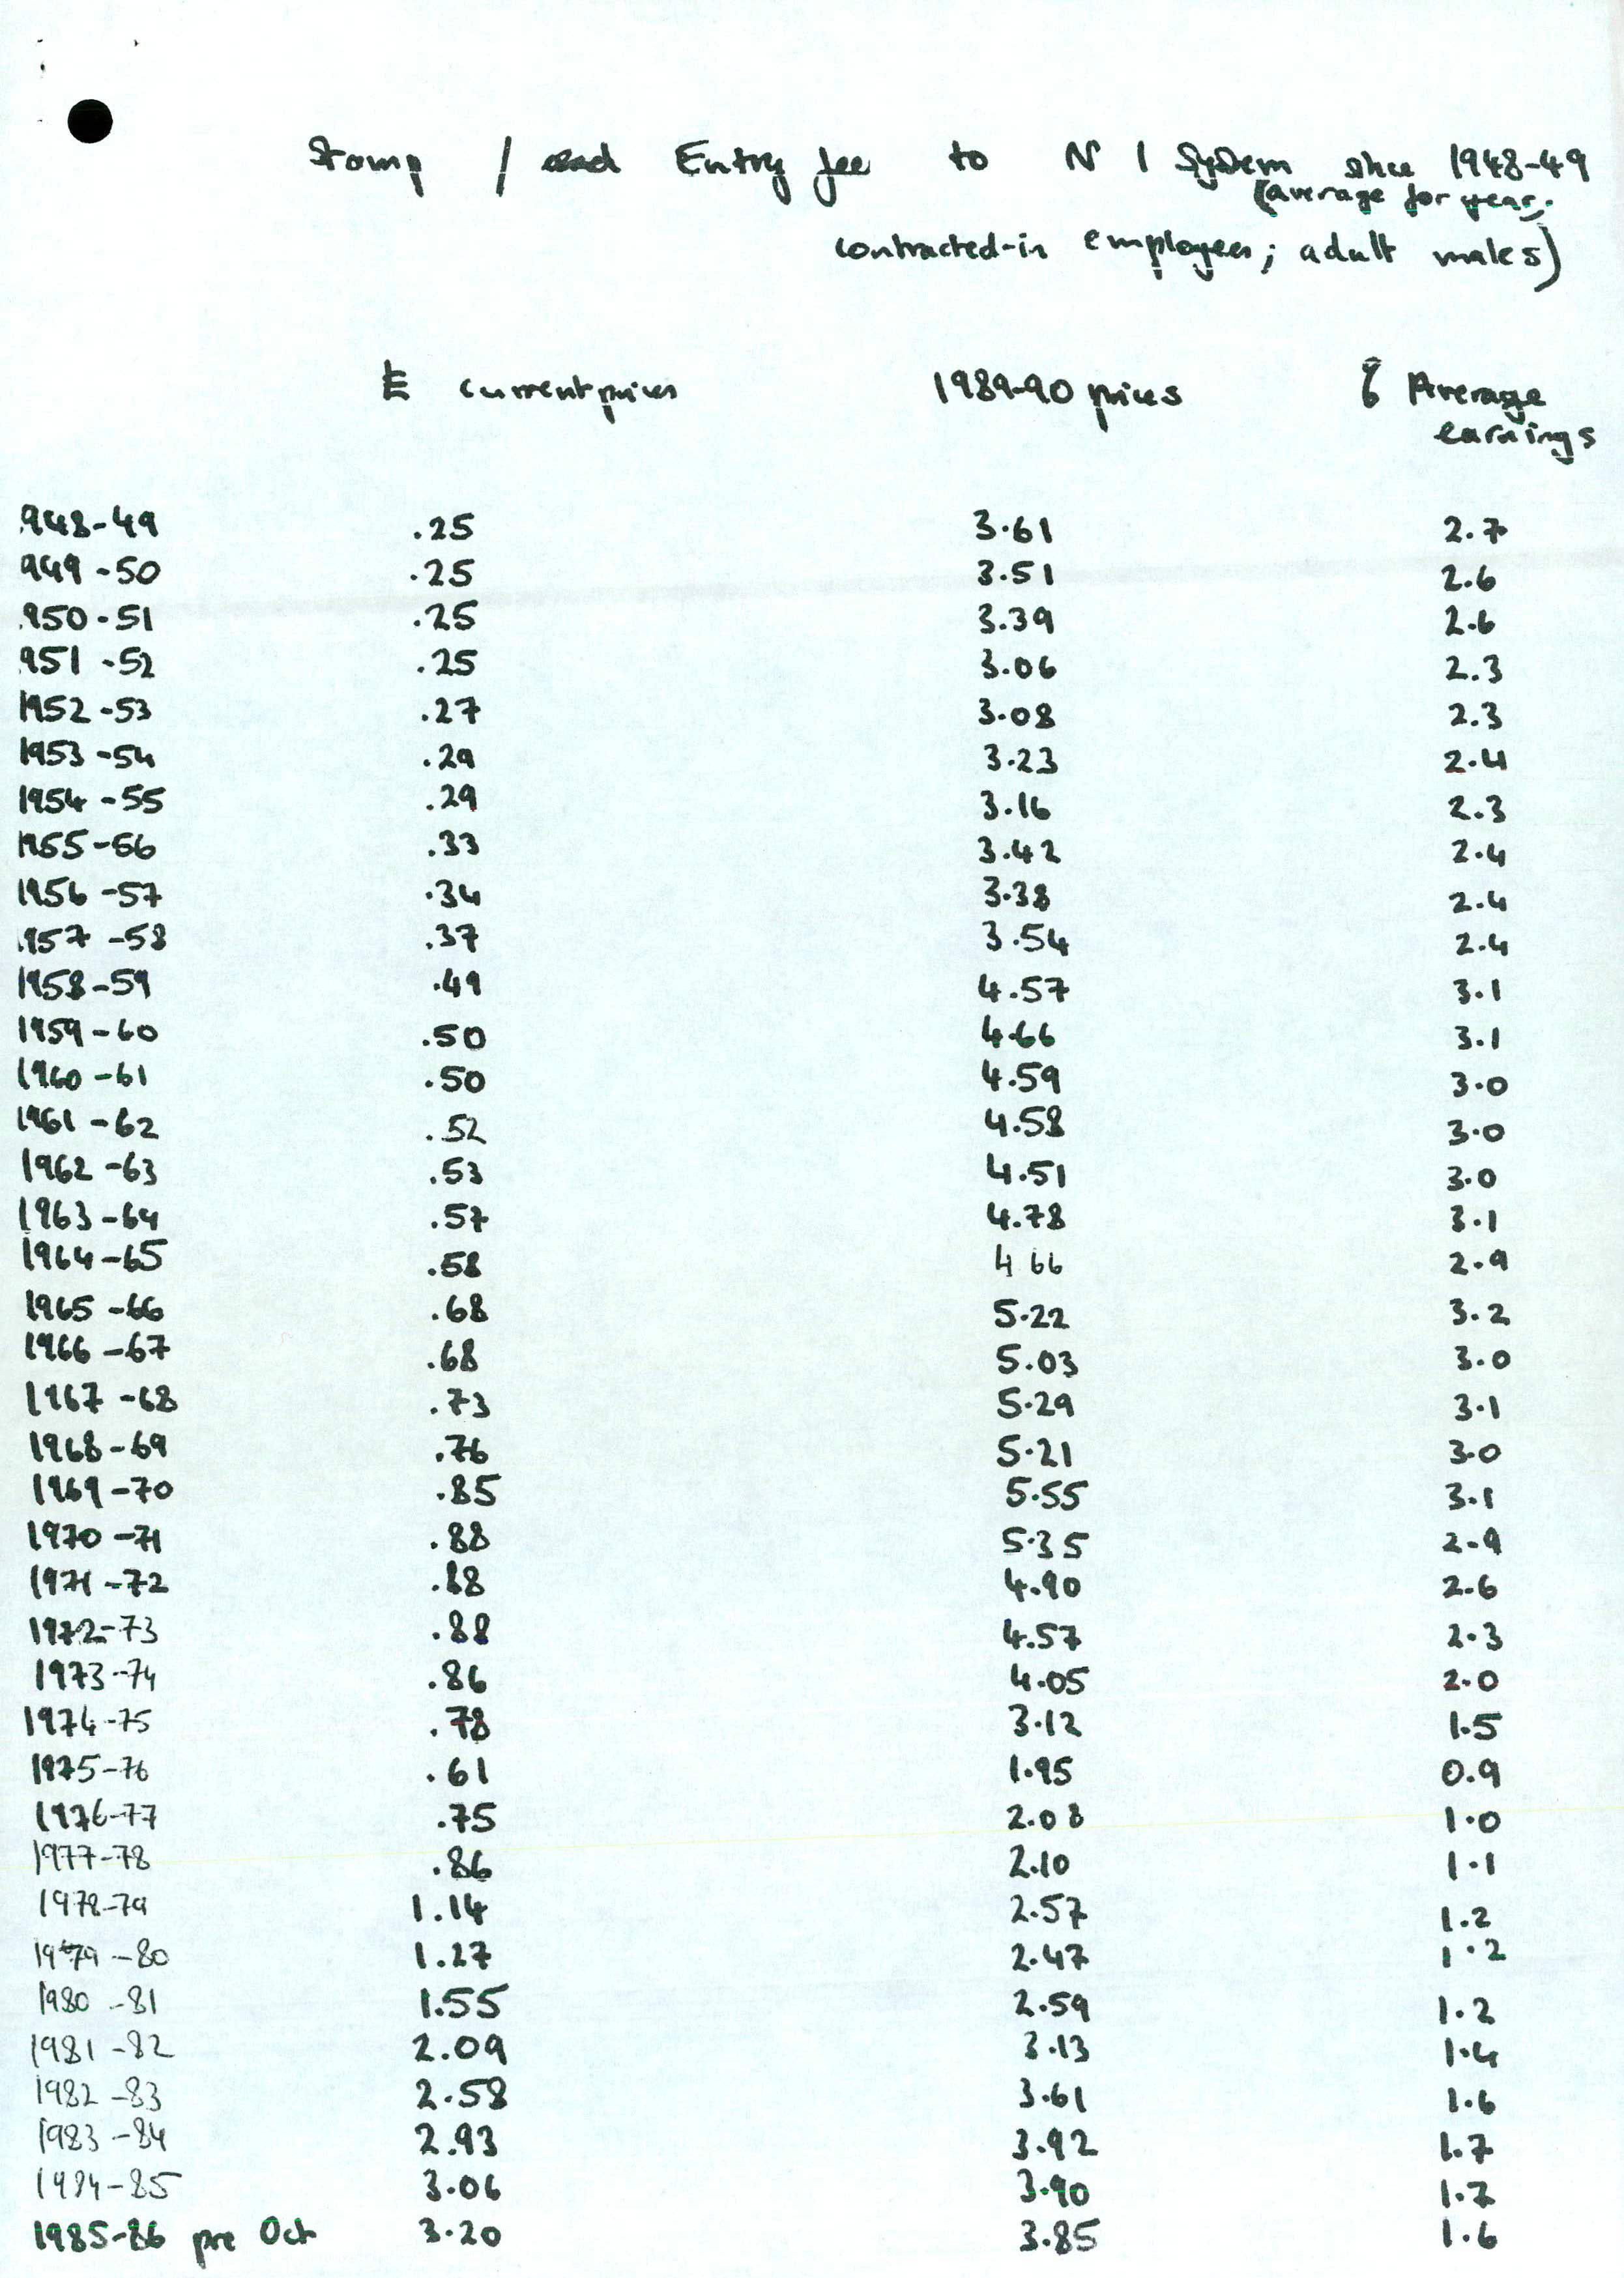 Stamp / Entry fee to N I System since 1948-49
(average for year,
contracted-in employees; adult males)
£ current prices 1989-90 prices % Average
earnings
948-49 .25 3.61 2.7
949-50 .25 3.51 2.6
950-51 .25 3.39 2.6
951-52 .25 3.06 2.3
1952-53 .27 3.08 2.3
1953-54 .29 3.23 2.4
1954-55 .29 3.16 2.3
1955-56 .33 3.42 2.4
1956-57 .34 3.38 2.4
1957-58 .37 3.54 2.4
1958-59 .49 4.57 3.1
1959-60 .50 4.66 3.1
1960-61 .50 4.59 3.0
1961-62 .52 4.58 3.0
1962-63 .53 4.51 3.0
1963-64 .57 4.78 3.1
1964-65 .58 4 66 2.9
1965-66 .68 5.22 3.2
1966-67 .68 5.03 3.0
1967-68 .73 5.29 3.1
1968-69 .76 5.21 3.0
1969-70 .85 5.55 3.1
1970-71 .88 5.35 2.9
1971-72 .88 4.90 2.6
1972-73 .88 4.57 2.3
1973-74 .86 4.05 2.0
1974-75 .78 3.12 1.5
1975-76 .61 1.95 0.9
1976-77 .75 2.08 1.0
1977-78 .86 2.10 1.1
1978-79 1.14 2.57 1.2
1979-80 1.27 2.47 1.2
1980-81 1.55 2.59 1.2
1981-82 2.09 3.13 1.4
1982-83 2.58 3.61 1.6
1983-84 2.93 3.92 1.7
1984-85 3.06 3.90 1.7
1985-86 pre Oct 3.20 3.85 1.6